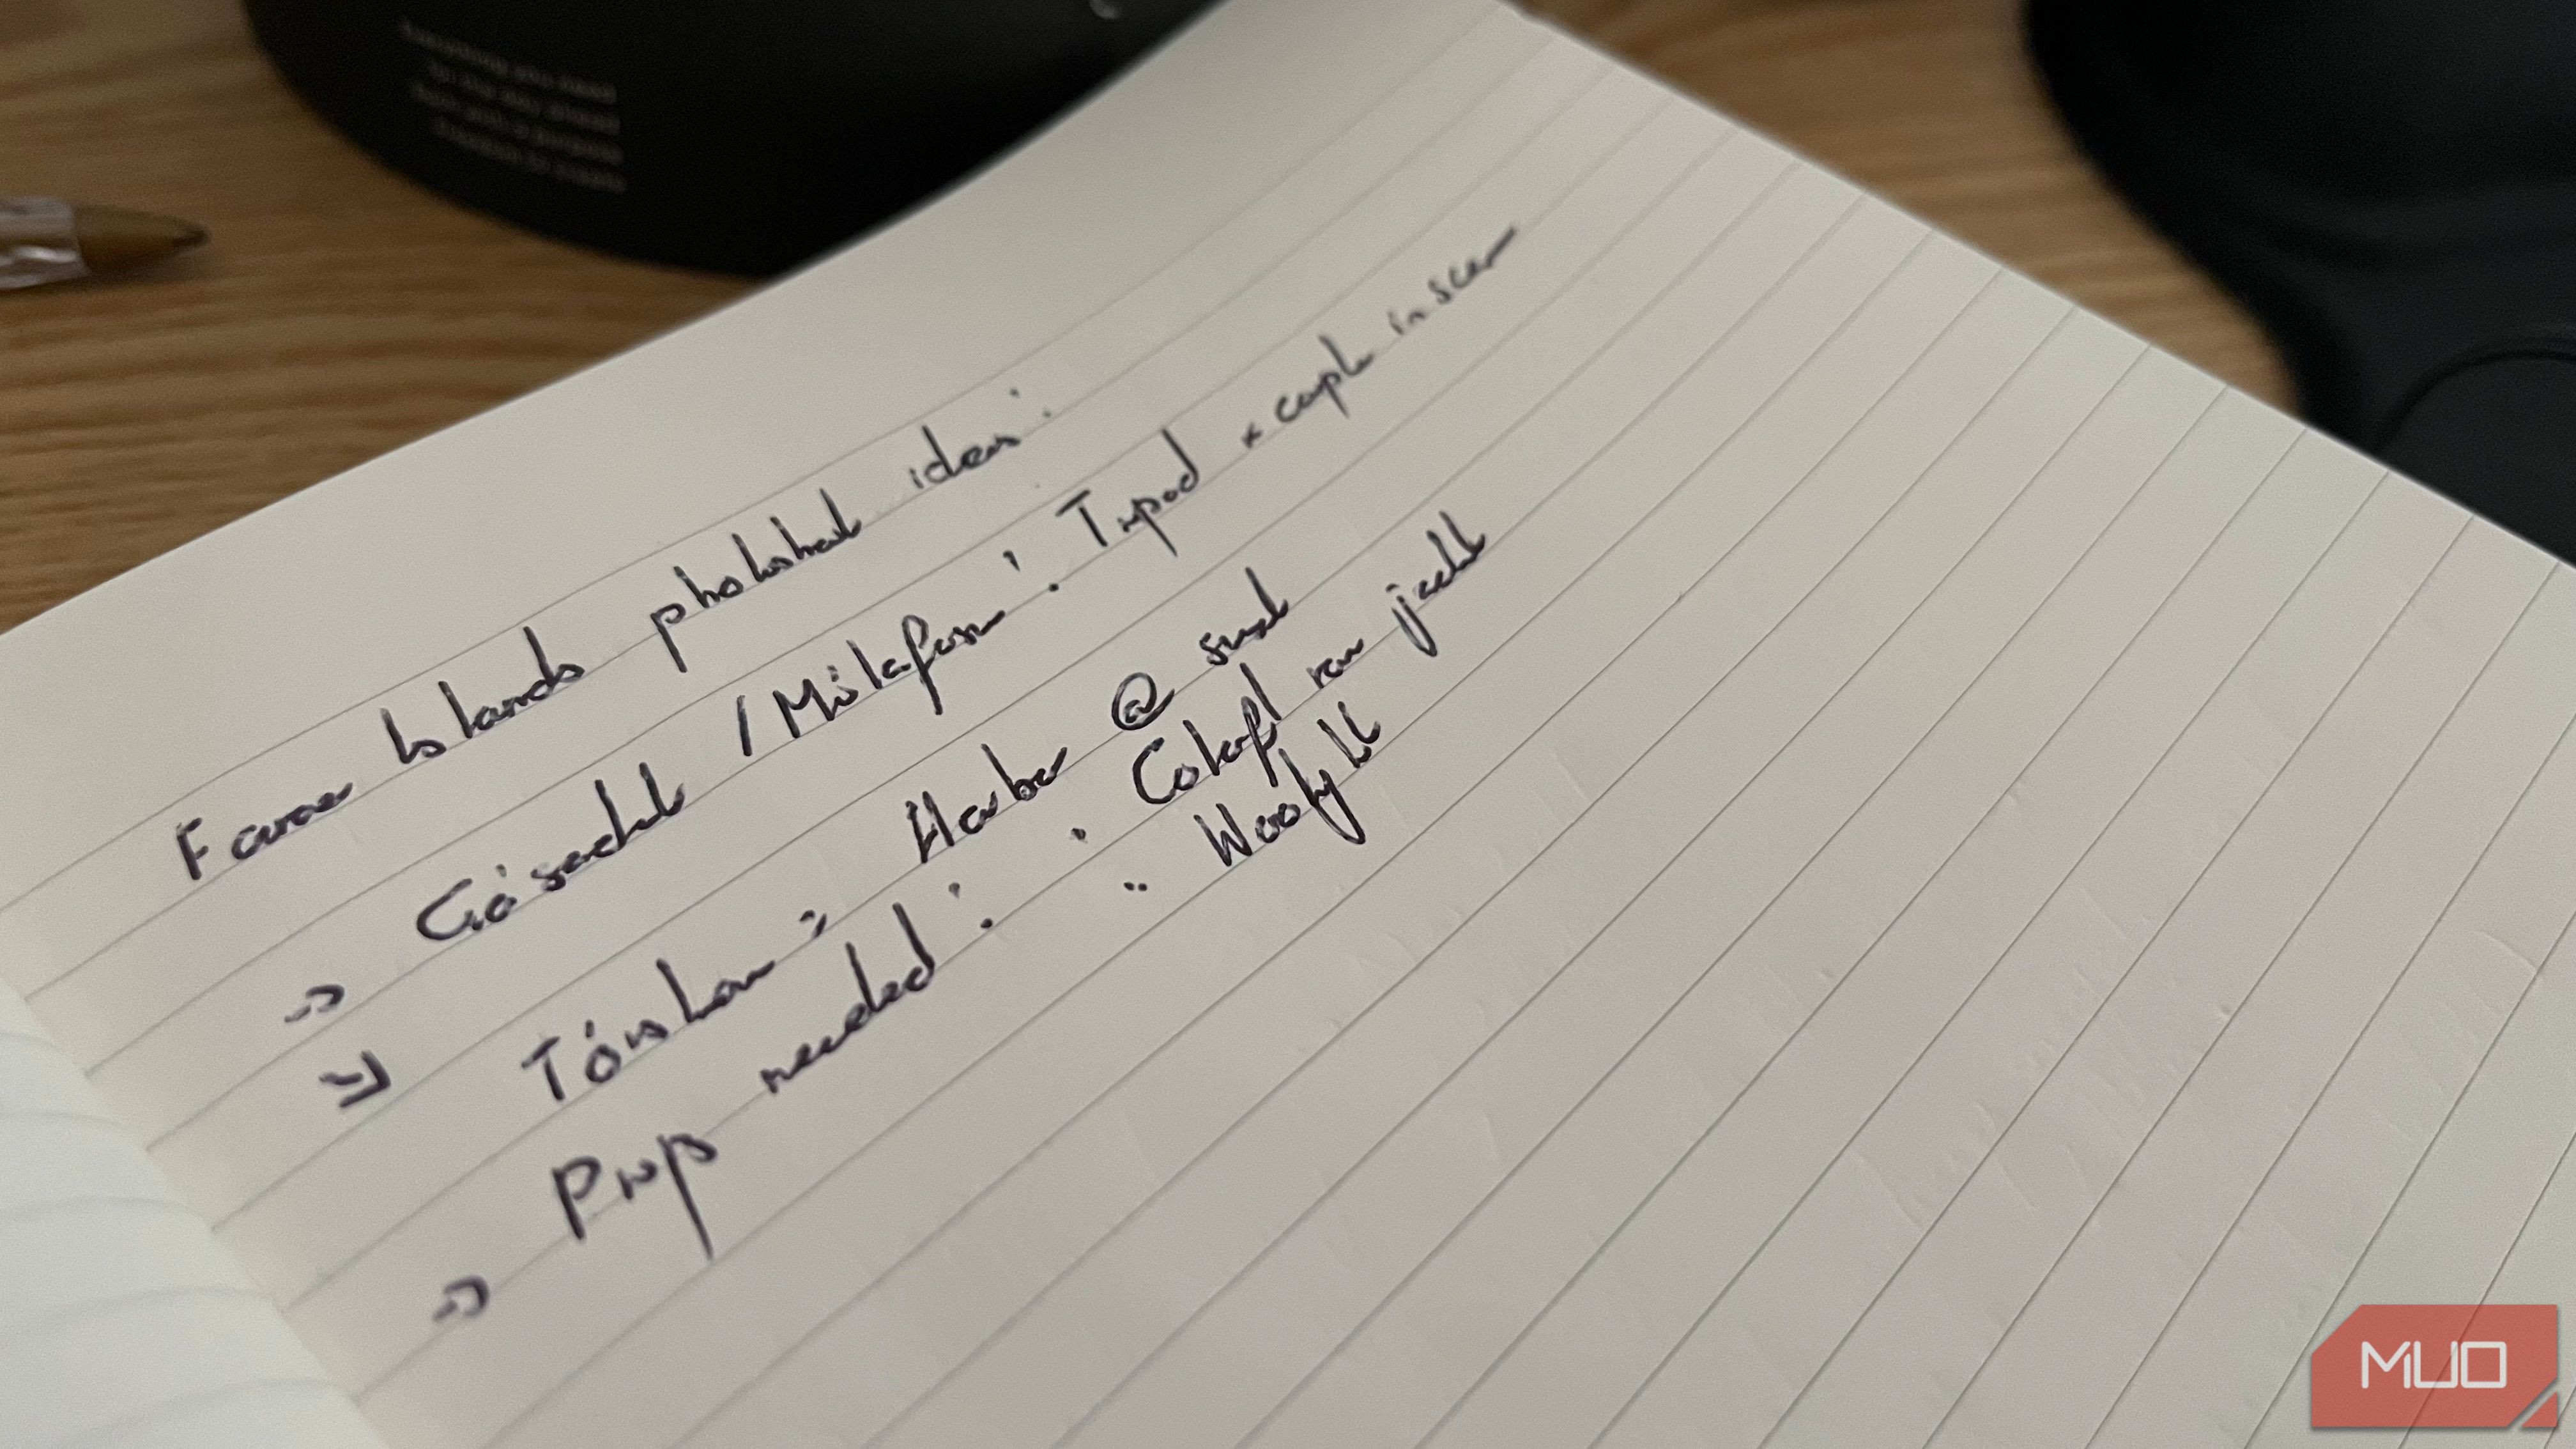 Faroe Islands photoshoot ideas:
→ Gásadalur / Múlafossur: Tripod + couple in scene
→ Tórshavn: Harbor @ sunset
→ Props needed: · Colorful rain jacket
·· Wooly hat
MUO